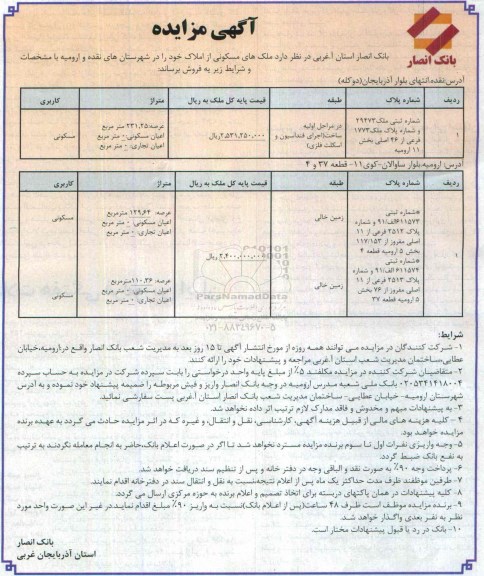 آگهی مزایده
بانک انصار
بانک انصار استان آ.غربی در نظر دارد ملک های مسکونی از املاک خود را در شهرستان های نقده و ارومیه با مشخصات
و شرایط زیر به فروش برساند:
آدرس:نقده.انتهای بلوار آذربایجان(دوکله)
ردیف شماره پلاک طبقه قیمت پایه کل ملک به ریال متراژ کاربری
۱ شماره ثبتی ملک۴۹۴۷۳ و شماره پلاک ملک۱۷۷۳ فرعی از ۴۶ اصلی بخش ۱۱ ارومیه در مراحل اولیه ساخت(اجرای فنداسیون و اسکلت فلزی) ۲,۵۳۱,۲۵۰,۰۰۰ریال عرصه:۲۳۱,۲۵ متر مربع اعیان مسکونی:۰ متر مربع اعیان تجاری:۰ متر مربع مسکونی
آدرس: ارومیه:بلوار ساوالان-کوی۱۱- قطعه ۳۷ و ۴
ردیف شماره پلاک طبقه قیمت پایه کل ملک به ریال متراژ کاربری
۱ *شماره ثبتی ۶۱۱۵۷۳الف/۹۱ و شماره پلاک ۲۵۱۲ فرعی از ۱۱ اصلی مفروز از ۱۱۷/۱۵۳ بخش ۵ ارومیه قطعه ۴ زمین خالی ۲,۴۰۰,۰۰۰,۰۰۰ریال عرصه: ۱۲۹,۶۴ مترمربع اعیان مسکونی:۰ متر مربع اعیان تجاری:۰ متر مربع مسکونی
*شماره ثبتی ۶۱۱۵۷۴الف/۹۱ و شماره پلاک ۲۵۱۳ فرعی از ۱۱ اصلی مفروز از ۷۶ بخش ۵ ارومیه قطعه ۳۷ زمین خالی عرصه:۱۱۰,۳۶مترمربع اعیان مسکونی:۰ متر مربع اعیان تجاری:۰ متر مربع مسکونی
ParsNamadData
۰۲۱-۸۸۳۴۹۶۷۰-۵
شرایط:
۱- شرکت کنندگان در مزایده می توانند همه روزه از مورخ انتشار آگهی تا ۱۵ روز بعد به مدیریت شعب بانک انصار واقع در:ارومیه،خیابان
عطایی،ساختمان مدیریت شعب استان آ.غربی مراجعه و پیشنهادات خود را ارائه کنند.
۲- متقاضیان شرکت کننده در مزایده مکلفند ۵٪ از مبلغ پایه واحد درخواستی را بابت سپرده شرکت در مزایده به حساب سپرده
۰۲۰۵۳۴۱۴۱۸۰۰۴ بانک ملی شعبه مدرس ارومیه در وجه بانک انصار واریز و فیش مربوطه را ضمیمه پیشنهاد خود نموده و به آدرس
شهرستان ارومیه- خیابان عطایی- ساختمان مدیریت شعب بانک انصار استان آ.غربی پست سفارشی نمائید.
۳- به پیشنهادات مبهم و مخدوش و فاقد مدارک لازم ترتیب اثر داده نخواهد شد.
۴- کلیه هزینه های مالی از قبیل هزینه آگهی، کارشناسی، نقل و انتقال، و غیره که در اثر مزایده حادث می گردد به عهده برنده
مزایده خواهد بود.
۵- وجه واریزی نفرات اول تا سوم برنده مزایده مسترد نخواهد شد تا اگر در صورت اعلام بانک،حاضر به انجام معامله نگردند به ترتیب
به نفع بانک ضبط گردد.
۶- پرداخت وجه ۹۰٪ به صورت نقد و الباقی وجه در دفتر خانه و پس از تنظیم سند دریافت خواهد شد.
۷- طرفین موظفند ظرف مدت حداکثر یک ماه پس از اعلام نتیجه،نسبت به نقل و انتقال سند در دفترخانه اقدام نمایند.
۸- کلیه پیشنهادات در همان پاکتهای دربسته برای اتخاذ تصمیم و اعلام برنده به حوزه مرکزی ارسال می گردد.
۹- برنده مزایده موظف است ظرف ۴۸ ساعت(پس از اعلام بانک)نسبت به واریز ۹۰٪ مبلغ اقدام نماید.در غیر این صورت واحد مورد
نظر به نفر بعدی واگذار خواهد شد.
۱۰- بانک در رد یا قبول پیشنهادات مختار است.
بانک انصار
استان آذربایجان غربی